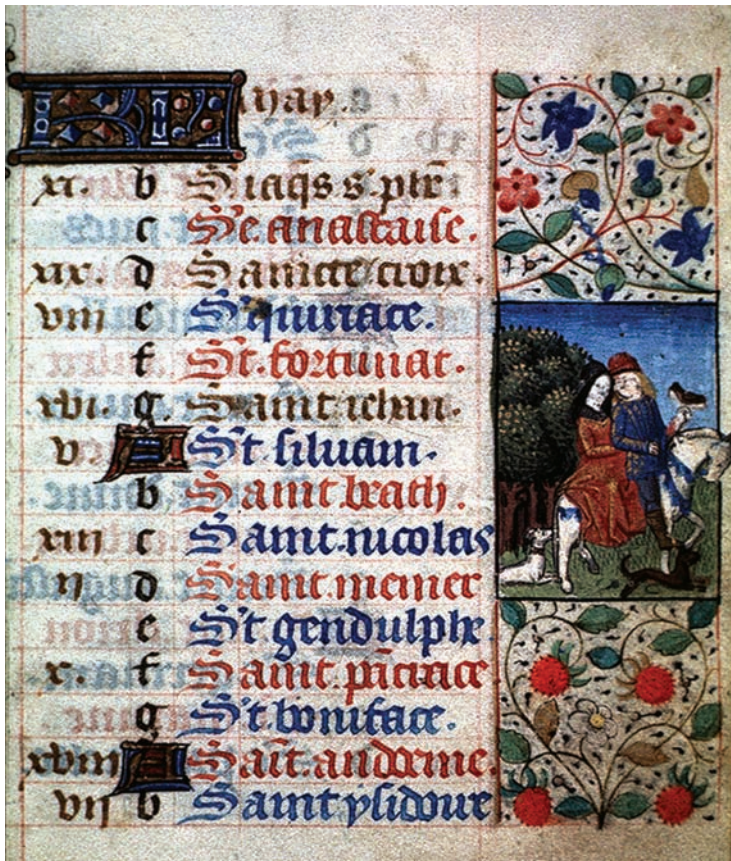 KL May.
xi. b S iaqs s. phe
c Se anastaise.
xix. d Saincte croix.
viii e St quiriace.
f St. fortunat.
xvi. g. Saint iehan.
v A St siluain.
b Saint beath.
xiii c Saint nicolas
ii d Saint memer
e St gendulphe.
x. f Saint pancrace
g St boniface.
xviii A Saint andorme.
vii b Saint ysidoire